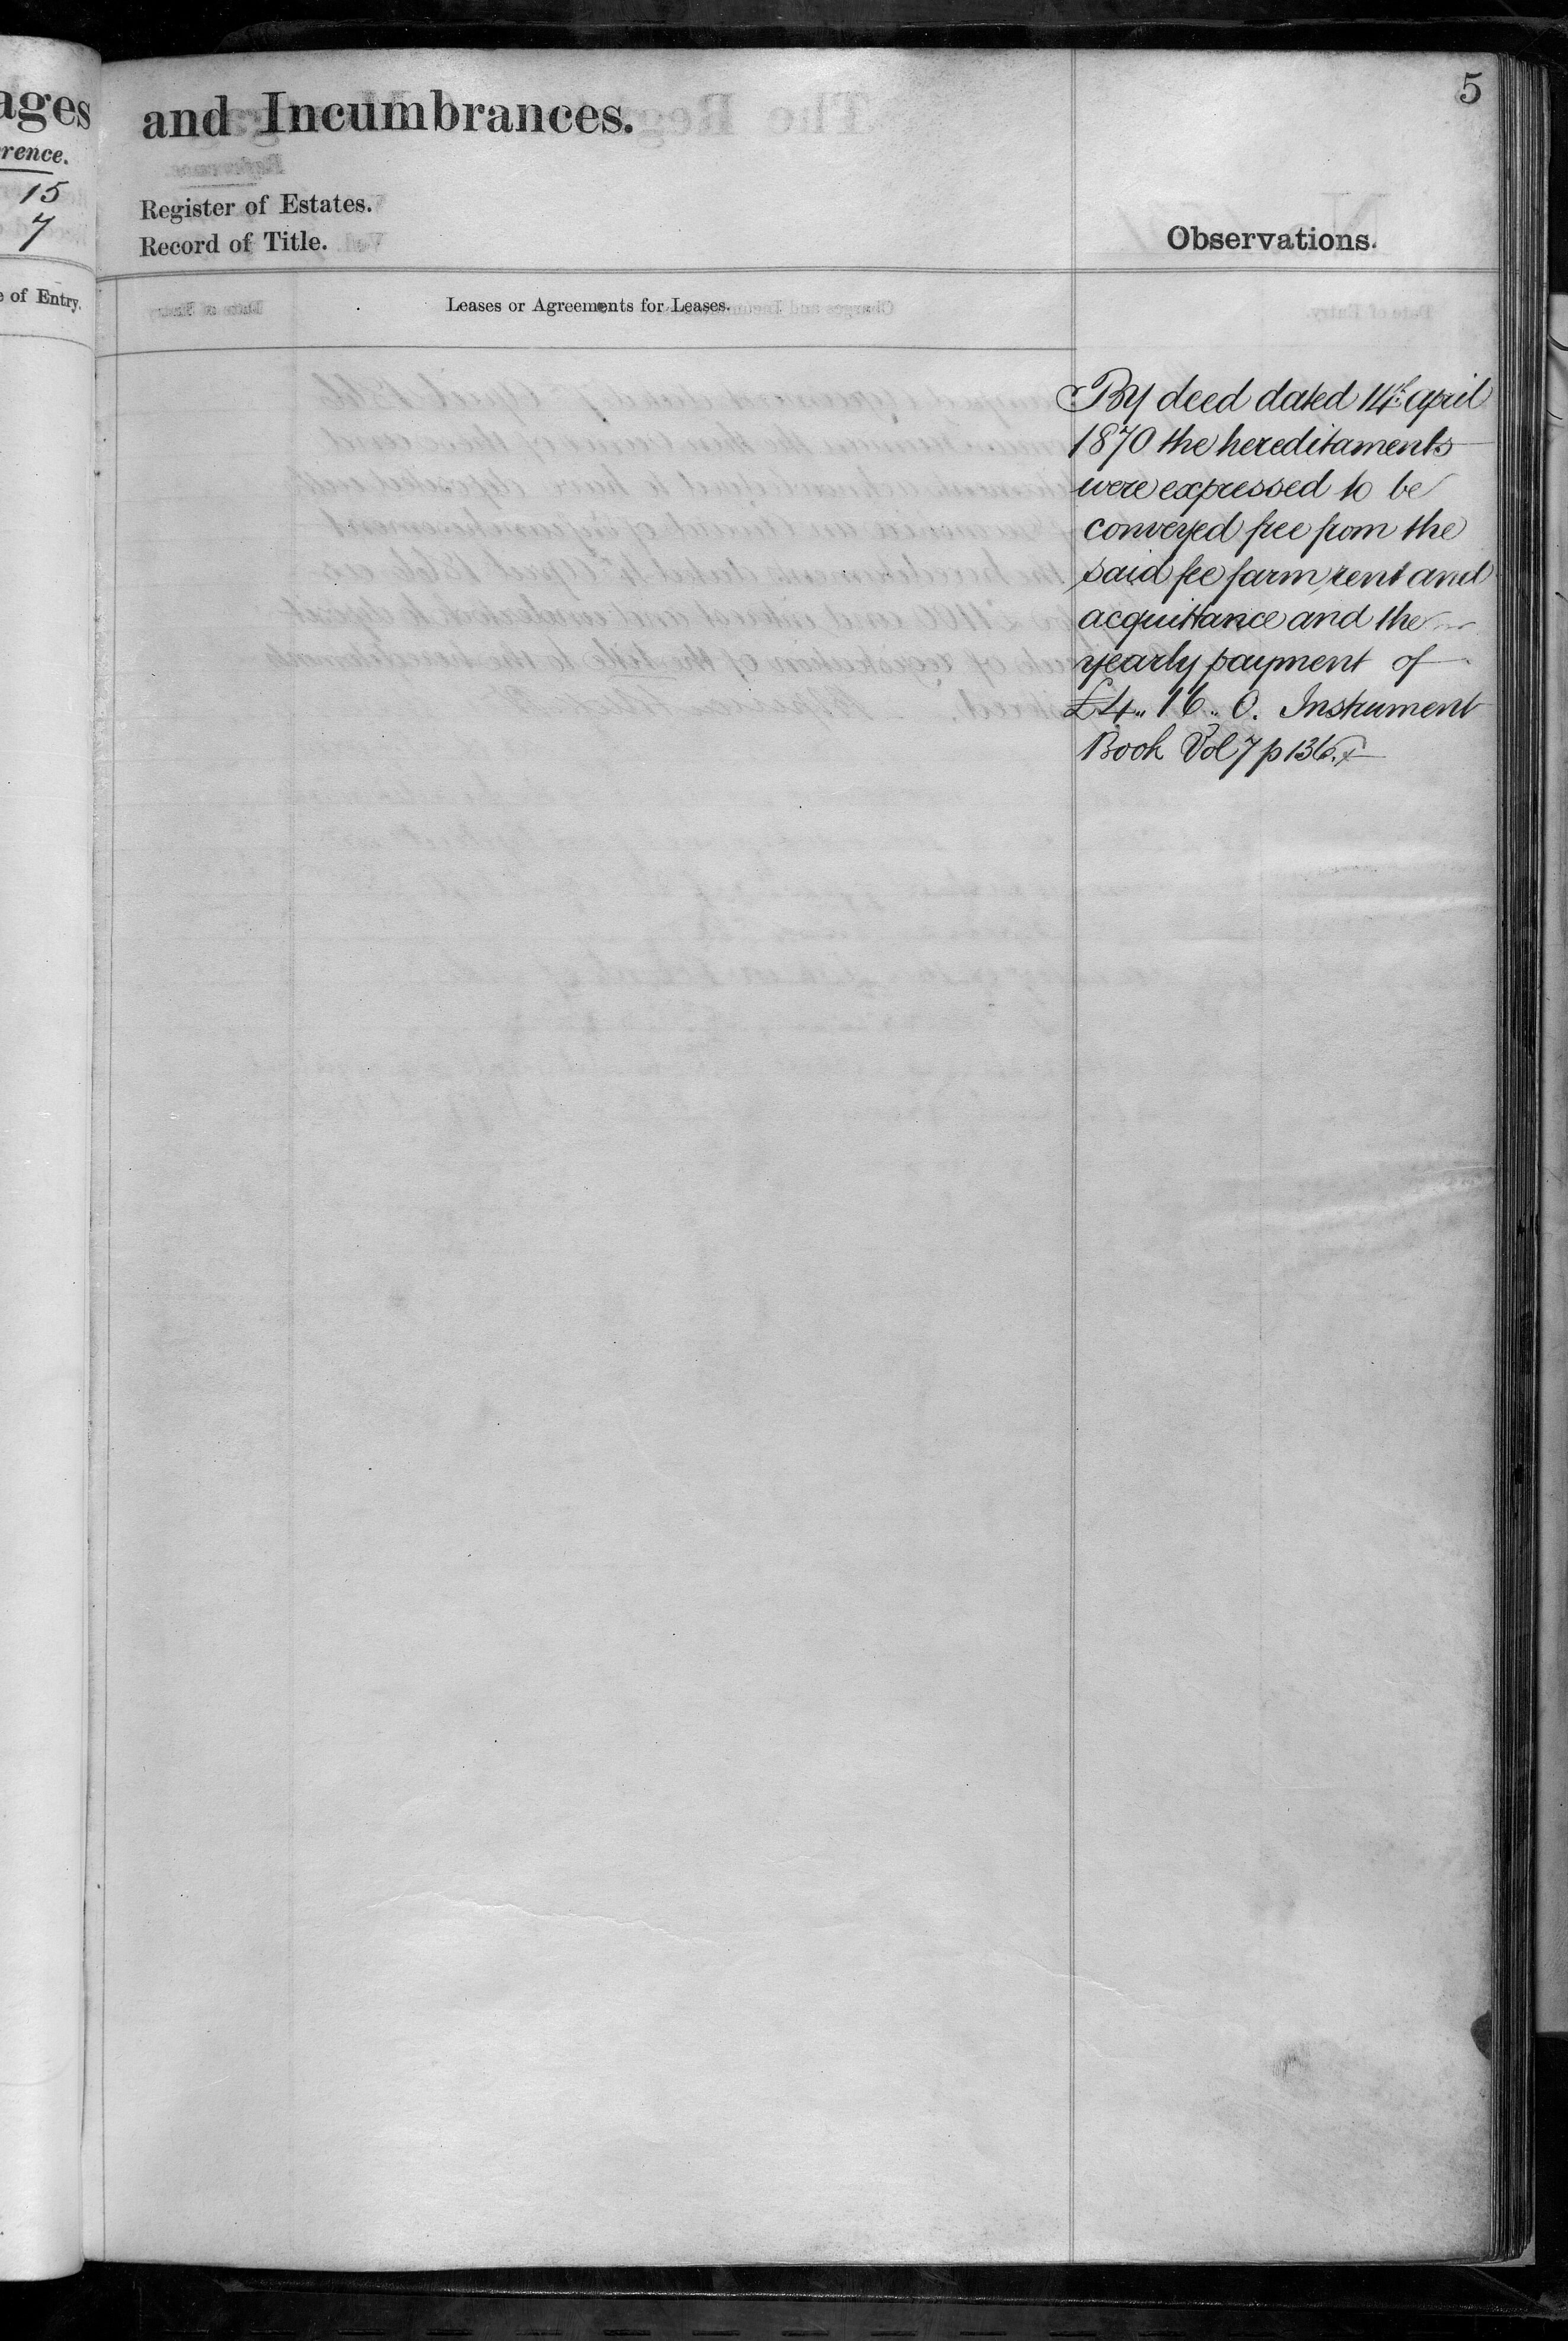 ages
rence.
15
7
e of Entry.
5
and Incumbrances.
Register of Estates.
Record of Title.
Observations.
Leases or Agreements for Leases.
By deed dated 14th april
1870 the hereditaments
were expressed to be
conveyed free from the
said fee farm rent and
acquittance and the
yearly payment of
£4.. 16.. 0. Instrument
Book Vol 7 p 136.